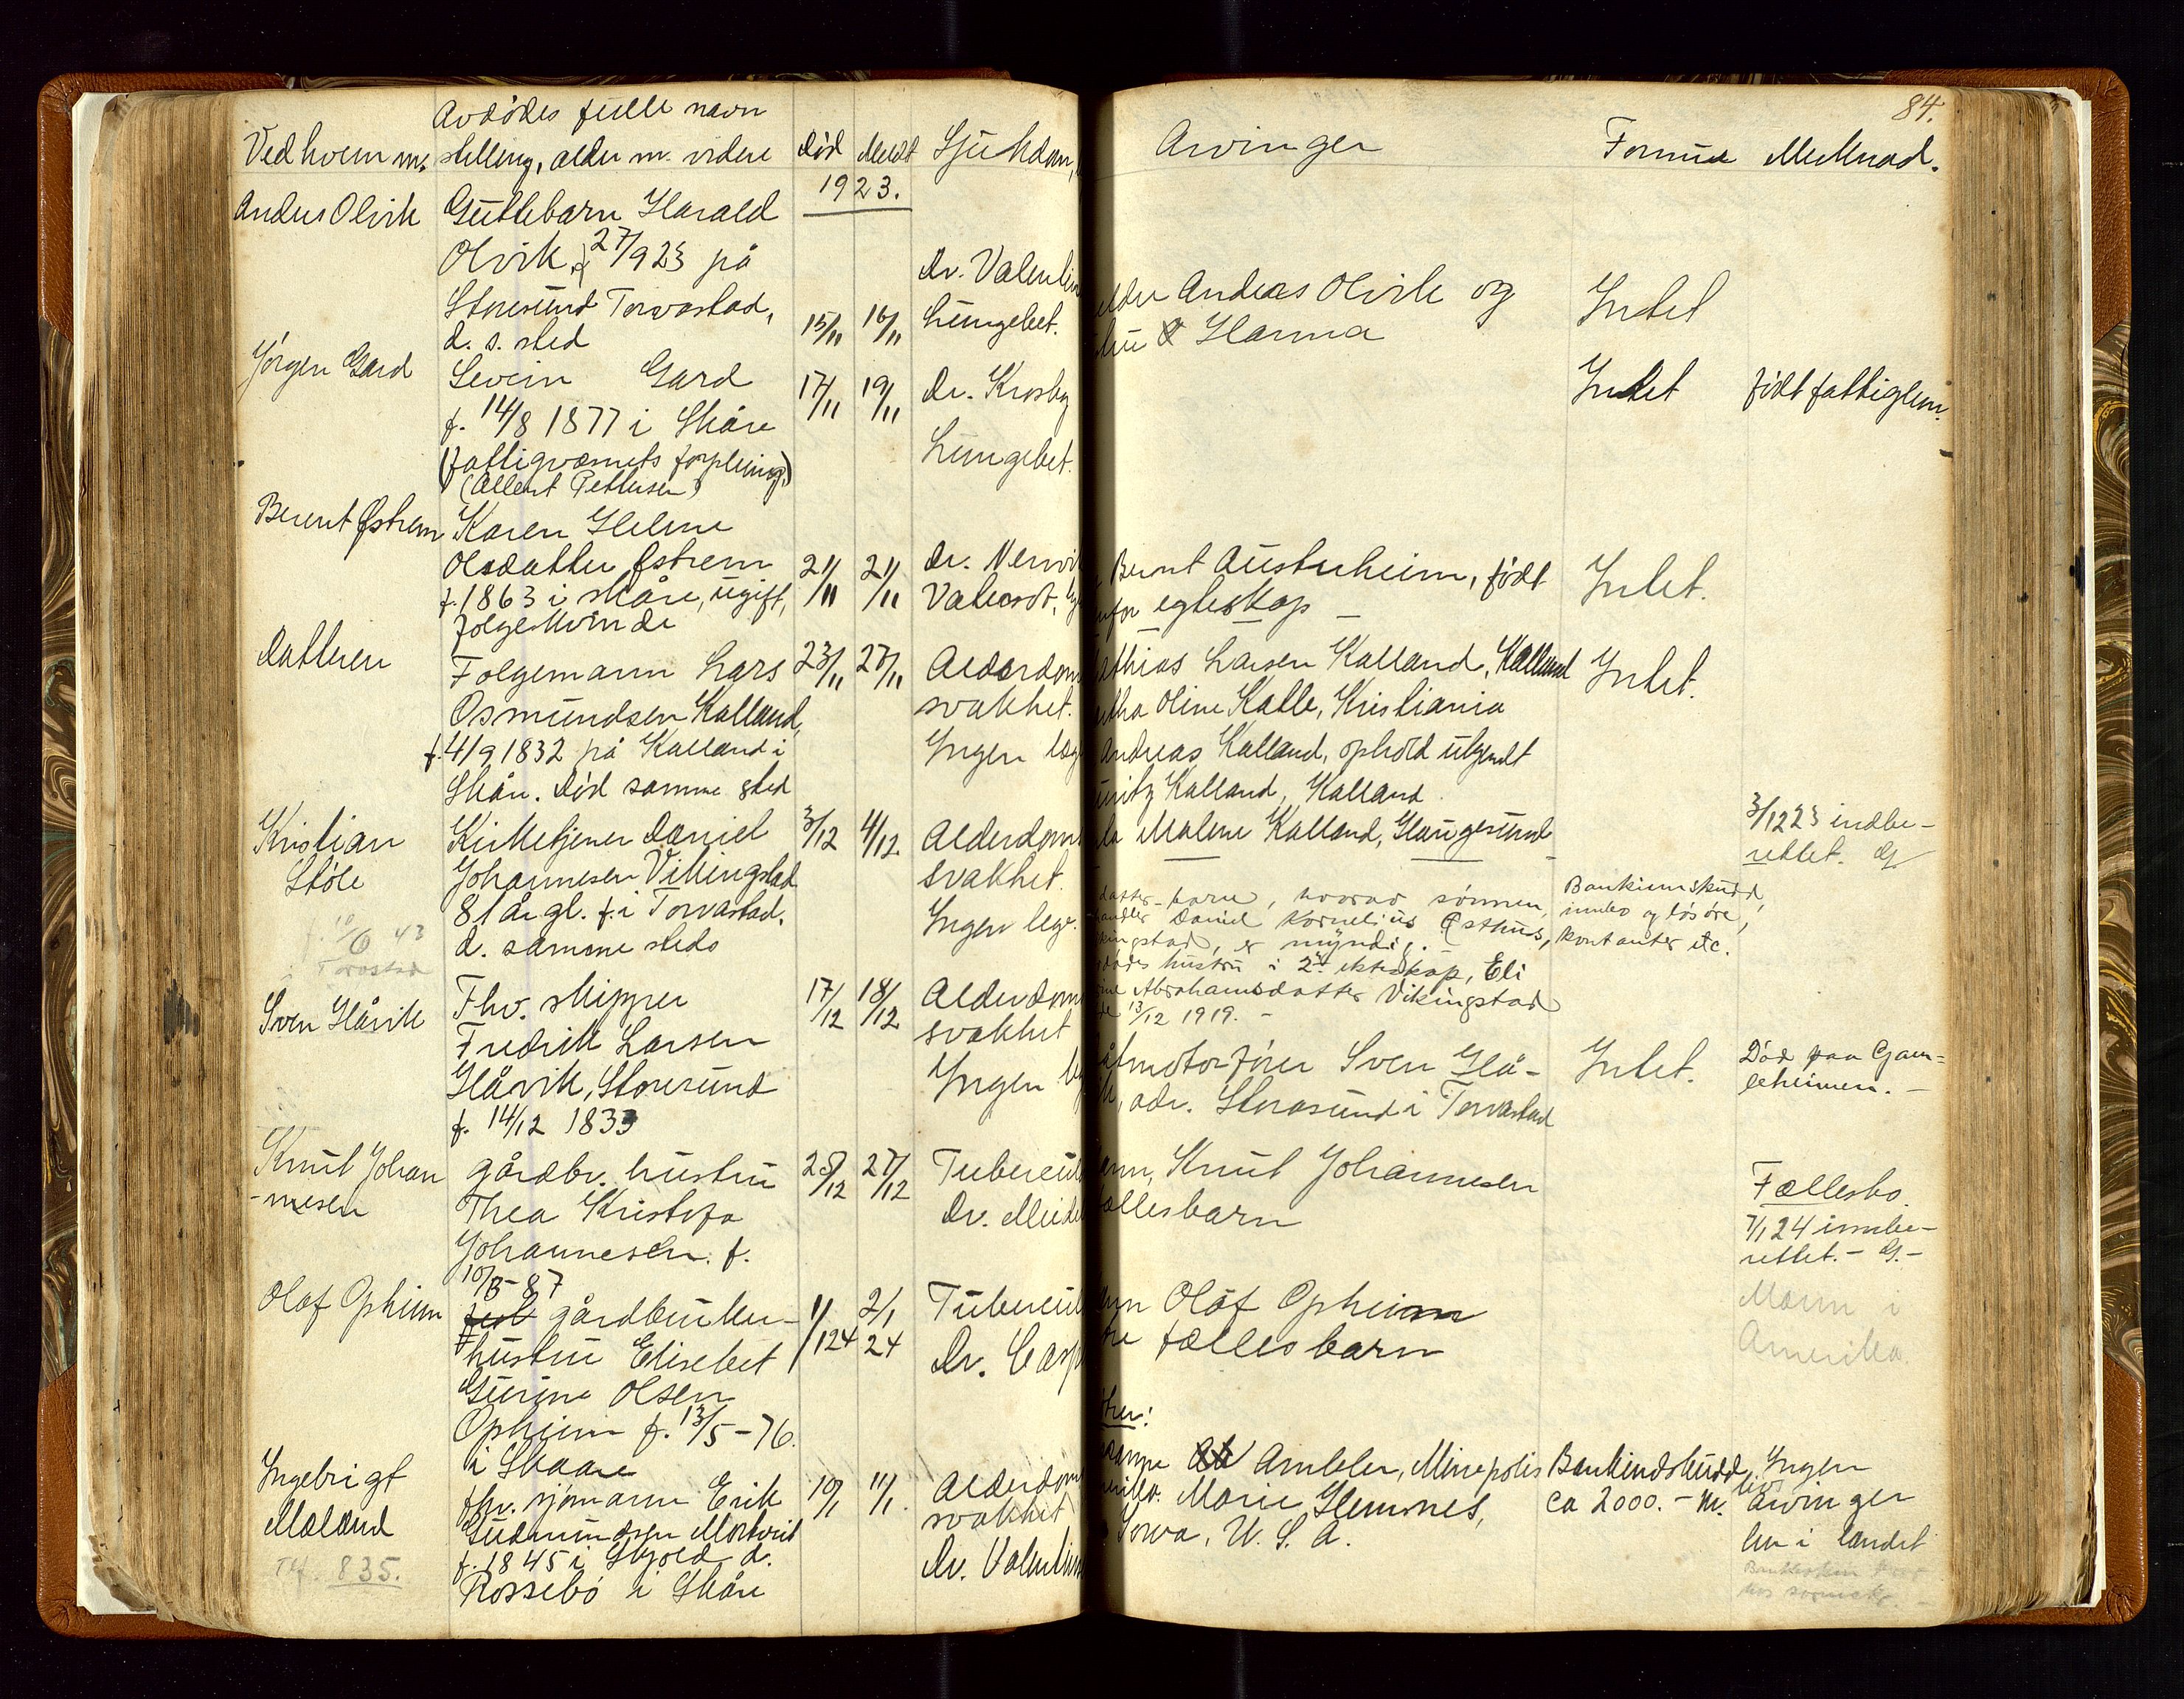 84.
Avdødes fulle navn
Ved hvem m. stilling, alder m. videre Død Meldt Sjukdom, Arvinger Formue Merknad.
1923.
Andus Olvik Guttebarn Harald
Olvik f. 27/9 23 på
Storesund Torvastad,
d. s. sted
15/11 16/11
Dr. Valentin
Lungebet.
Andreas Olvik og
Hanna
Intet
Jørgen Gard Sevrin Gard
f. 14/8 1877 i Skåre
(fattigvæsnets forpleining)
(Allert Pettersen)
17/11 19/11
Dr. Krosby
Lungebet.
Intet født fattiglem.
Berent Østrem Karen Helene
Olsdatter Østrem
f. 1863 i Skåre, ugift,
folgekvinde
21/11 21/11
Dr.
Bernt Austerheim, født
egteskap –
Intet.
Datteren Folgemann Lars
Osmundsen Kalland,
f. 4/9 1832 på Kalland i
Skåre. Død samme sted
23/11 27/11
Alderdom
svakhet.
Ingen
Larsen Kalland, Kalland
Oline Kalle, Kristiania
Andreas Kalland, ophold ukjendt
Kalland, Kalland.
Malene Kalland, Haugesund
Intet.
Kristian
Støle
10/6 43
Torvastad
Kirketjener Daniel
Johannesen Vikingstad
81 år gl. f. i Torvastad.
d. samme steds
3/12 4/12
Alderdoms
svakhet.
Ingen lege.
datter-barn, hvorav sønnen,
Daniel Kornelius Østhus,
er myndig.
hustru i 2det ekteskap, Eli
Abrahamsdatter Vikingstad
13/12 1919. –
Bankinnskudd,
innbo og løsøre,
kontanter etc.
3/12 23 indbe-
rettet. G
Sven Håvik Fhv. skipper
Fredrik Larsen
Håvik, Storesund
f. 14/12 1833
17/12 18/12
Alderdom
svakhet
Ingen
Sven Hå-
adr. Storasund i Torvastad
Intet.
Død paa Gam-
leheimen. –
Knut Johan
-nesen
gårdbr. hustru
Thea Kristofa
Johannesen. f.
10/8-87
27/12
Tubercul
Dr.
Knut Johannesen
fællesbarn
Fællesbo.
7/1 24 innbe-
rettet. – G. –
Olaf Opheim gårdbruker-
hustru Elisebet
Gurine Olsen
Opheim f. 13/5-76.
i Skaare
1/1 24 2/1 24
Tubercul
Dr.
Olaf Opheim
fællesbarn
Mann i
Amerika.
Ingebrigt
Mæland
Tlf. 835.
fhv. sjømann Erik
Gudmundsen
f. 1845 i Skjold d.
Rossebø i Skåre
10/1 11/1
Alderdom
svakhet
Dr. Valentin
Ambler, Minepolis
Marie Hemnes,
Iowa, U. S. A.
Bankindskudd,
ca 2000. –
Ingen
arvinger
her i landet